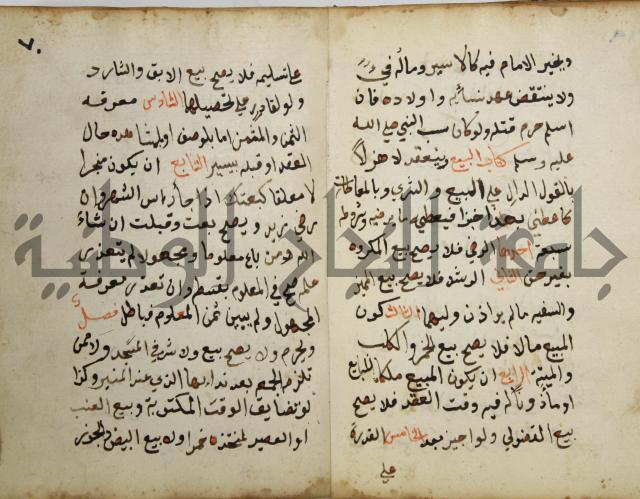 ويخير الامام فيه كالاسير وماله فيء
ولا ينتقض عهد نسائه واولاده فان
اسلم حرم قتله ولو كان سب النبي صلى الله
عليه وسلم كتاب البيع وينعقد لا هزلا
بالقول الدال على البيع و الشرى وبالمعاطاة
كاعطني بهذا خبزا فيعطيه ما يرضيه وشروطه
سبعة احدها الرضى فلا يصح بيع المكره
بغير حق الثاني الرشد فلا يصح بيع المميز
والسفيه ما لم ياذن وليهما الثالث كون
المبيع مالا فلا يصح بيع الخمر و الكلب
والميتة الرابع ان يكون المبيع ملكا للبايع
او ماذونا له فيه وقت العقد فلا يصح
بيع الفضولي ولو اجيز بعد الخامس القدرة
على
٧٠
على تسليمه فلا يصح بيع الابق والشارد
ولو لقادر على تحصيلهما السادس معرفة
الثمن والمثمن اما بالوصف او المشاهدة حال
العقد او قبله بيسير السابع ان يكون منجزا
لا معلقا كبعتك اذا جاء راس الشهر وان
رضي زيد ويصح بعت وقبلت ان شاء
الله ومن باع معلوما ومجهولا لم يتعذر
علمه صح في المعلوم بقسطه وان تعذر معرفة
المجهول ولم يبين ثمن المعلوم فباطل فصل
ويحرم ولا يصح بيع ولا شرى في المسجد ولا ممن
تلزمه الجمعة بعد ندائها الذي عند المنبر وكذا
لو تضايق الوقت المكتوبة وبيع العنب
او العصير لمتخذه خمرا ولا بيع البيض والجوز
جامعة النجاح الوطنية